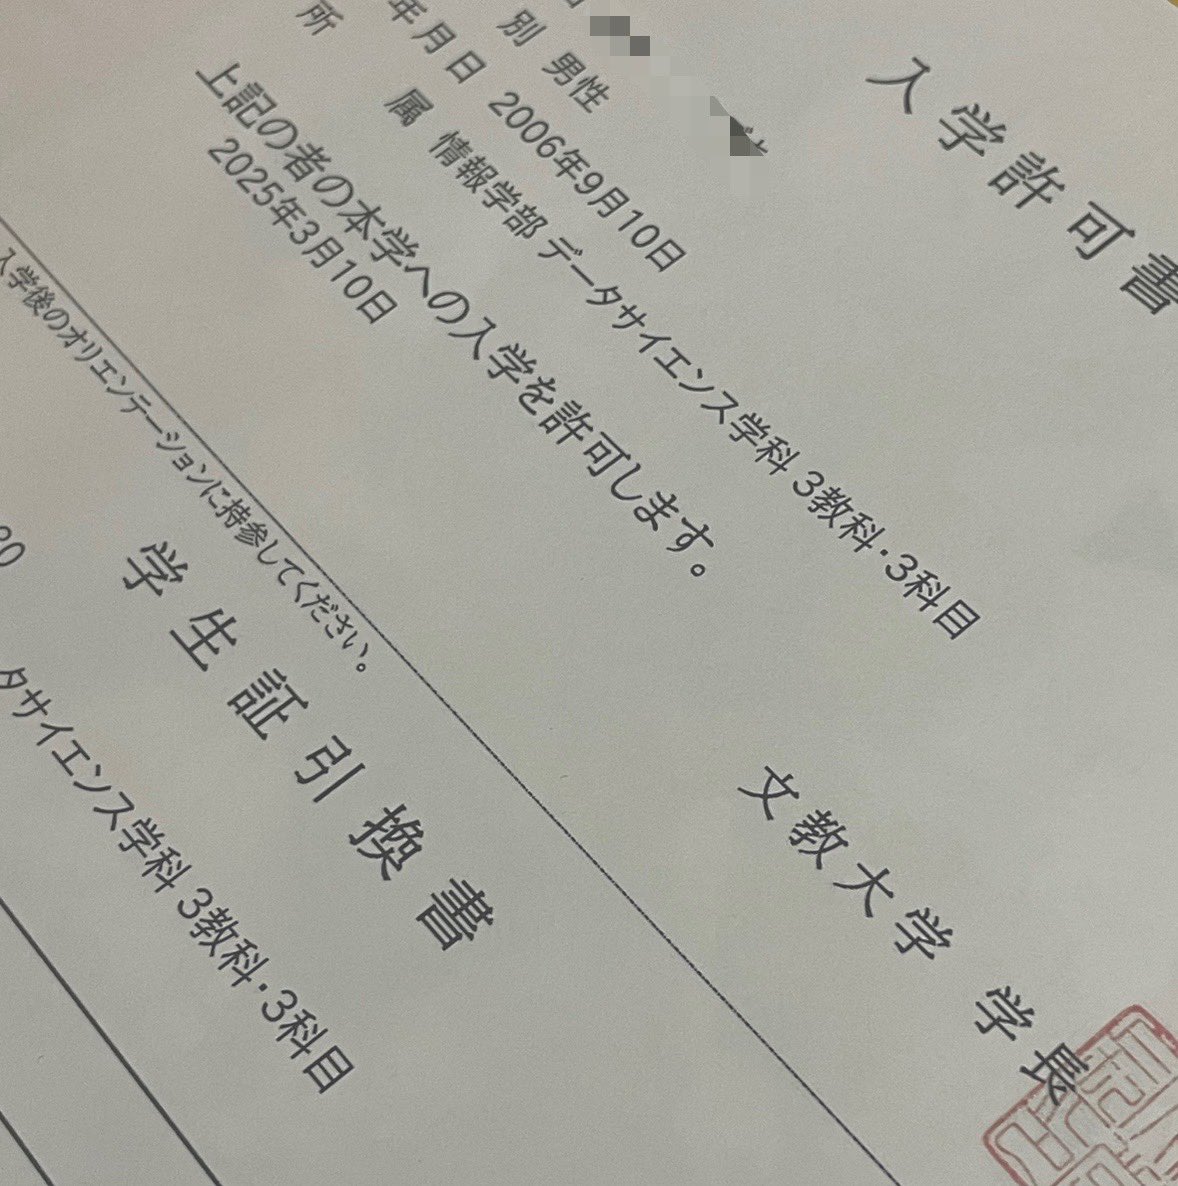 入学許可書
別 男性
年月日 2006年9月10日
所属 情報学部 データサイエンス学科 3教科・3科目
上記の者の本学への入学を許可します。
2025年3月10日
文教大学 学長
入学後のオリエンテーションに持参してください。
学生証引換書
タサイエンス学科 3教科・3科目